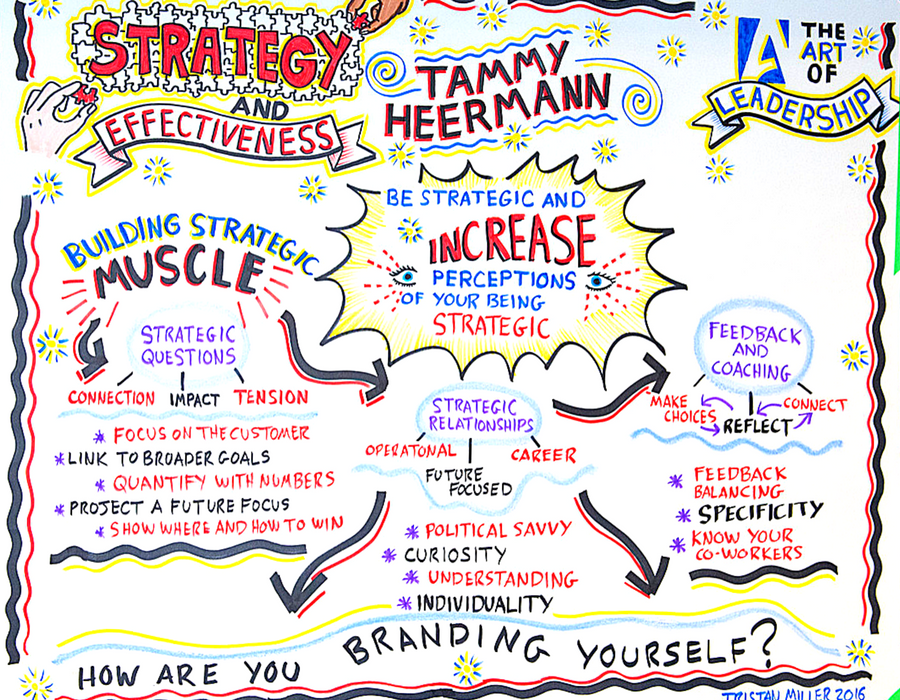 STRATEGY
AND
EFFECTIVENESS
TAMMY
HEERMANN
THE
ART
OF
LEADERSHIP
BE STRATEGIC AND
INCREASE
PERCEPTIONS
OF YOUR BEING
STRATEGIC
BUILDING STRATEGIC
MUSCLE
STRATEGIC
QUESTIONS
CONNECTION IMPACT TENSION
* FOCUS ON THE CUSTOMER
* LINK TO BROADER GOALS
* QUANTIFY WITH NUMBERS
* PROJECT A FUTURE FOCUS
* SHOW WHERE AND HOW TO WIN
STRATEGIC
RELATIONSHIPS
OPERATONAL
FUTURE
FOCUSED
CAREER
* POLITICAL SAVVY
* CURIOSITY
* UNDERSTANDING
* INDIVIDUALITY
FEEDBACK
AND
COACHING
MAKE
CHOICES
REFLECT
CONNECT
* FEEDBACK
BALANCING
* SPECIFICITY
* KNOW YOUR
CO-WORKERS
HOW ARE YOU BRANDING YOURSELF?
TRISTAN MILLER 2016